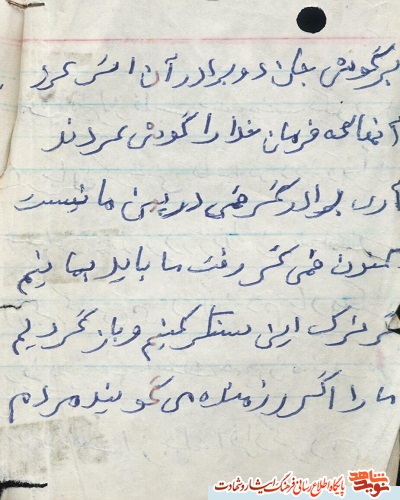 بر گوش جان دو برادر آن اثر کرد
آنها که فرمان خدا را گوش کردند
آری برادر گر خمی در بین ما نیست
اکنون خمی گر رفت ما باید بمانیم
گر ترک این سنگر کنیم و باز گردیم
ما را اگر رزمنده می گویند مردم
نوید شاهد پایگاه اطلاع رسانی فرهنگ ایثار و شهادت